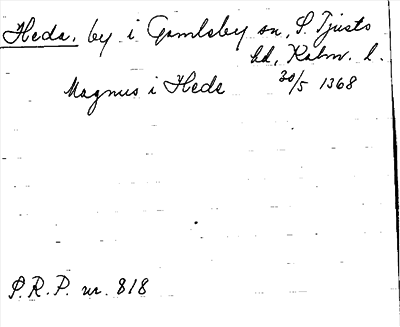 Heda, by i Gamleby sn, S. Tjusts
hd, Kalm. l.
Magnus i Heda 30/5 1368
P.R.P. nr. 818